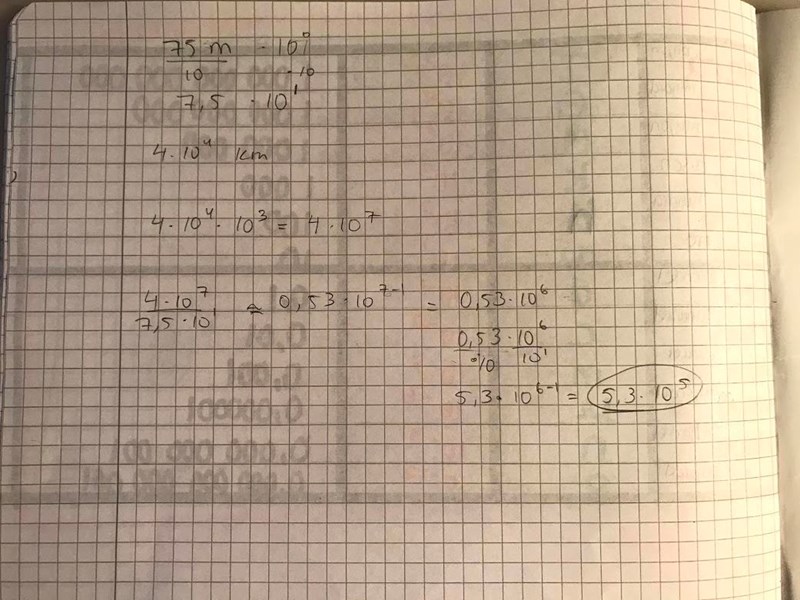 75 m · 10⁰
10 · 10
7,5 · 10¹
4 · 10⁴ km
4 · 10⁴ · 10³ = 4 · 10⁷
4 · 10⁷ / 7,5 · 10¹ ≈ 0,53 · 10⁷⁻¹ = 0,53 · 10⁶
0,53 · 10⁶
%10 10¹
5,3 · 10⁶⁻¹ = 5,3 · 10⁵